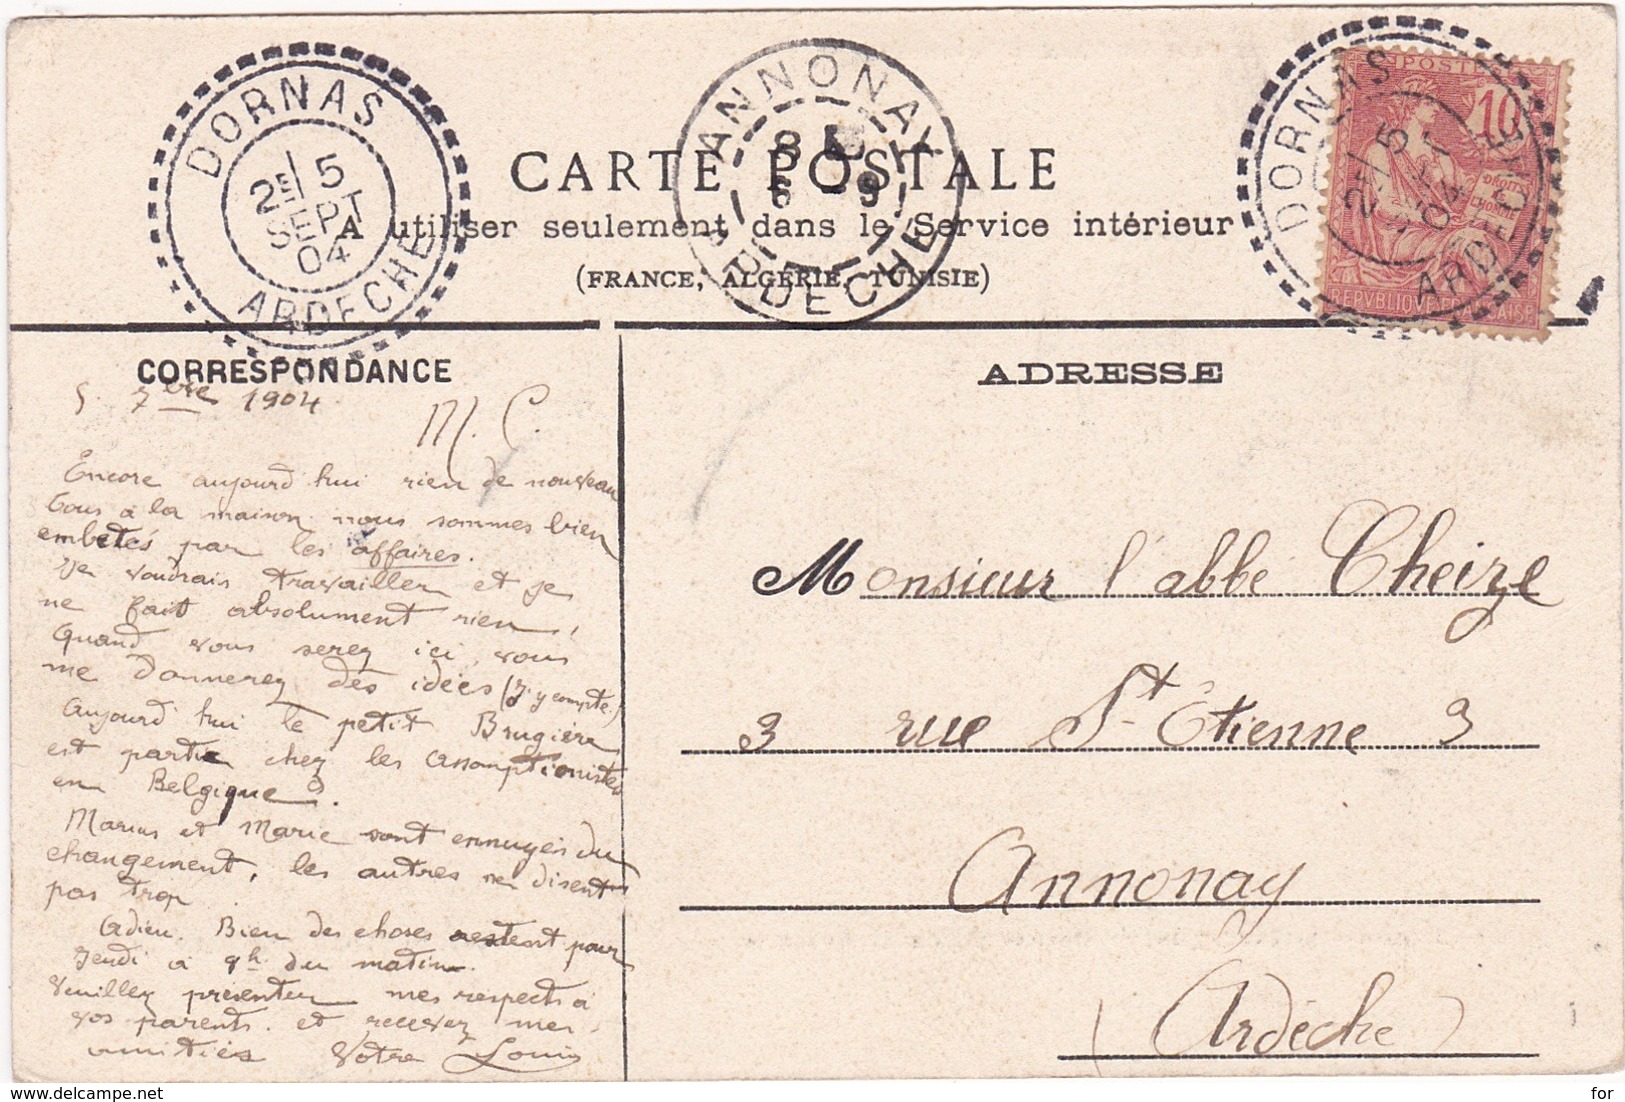 DORNAS
2E 5
SEPT
04
ARDECHE
ANNONAY
ARDECHE
CARTE POSTALE
A utiliser seulement dans le Service intérieur
(FRANCE, ALGÉRIE, TUNISIE)
DORNAS
2E 5
04
ARDECHE
POSTES
10
DROITS DE L'HOMME
REPVBLIQVE FRANÇAISE
CORRESPONDANCE
5 7bre 1904
M. C.
Encore aujourd'hui rien de nouveau
Tous à la maison nous sommes bien
embetés par les affaires.
Je voudrais travailler et je
ne fait absolument rien,
Quand vous serez ici, vous
me donnerez des idées (J'y compte.)
Aujourd'hui le petit Brugière
est partie chez les assomptionistes
en Belgique.
Marius et Marie sont ennuyés du
changement, les autres ne disent
pas trop
Adieu. Bien des choses restent pour
Jeudi à 9h du matin.
Veuillez présenter mes respects à
vos parents. et recevez mes
amitiés Votre Louis
ADRESSE
Monsieur l'abbé Cheize
3 rue St Etienne 3
Annonay
(Ardèche)
for